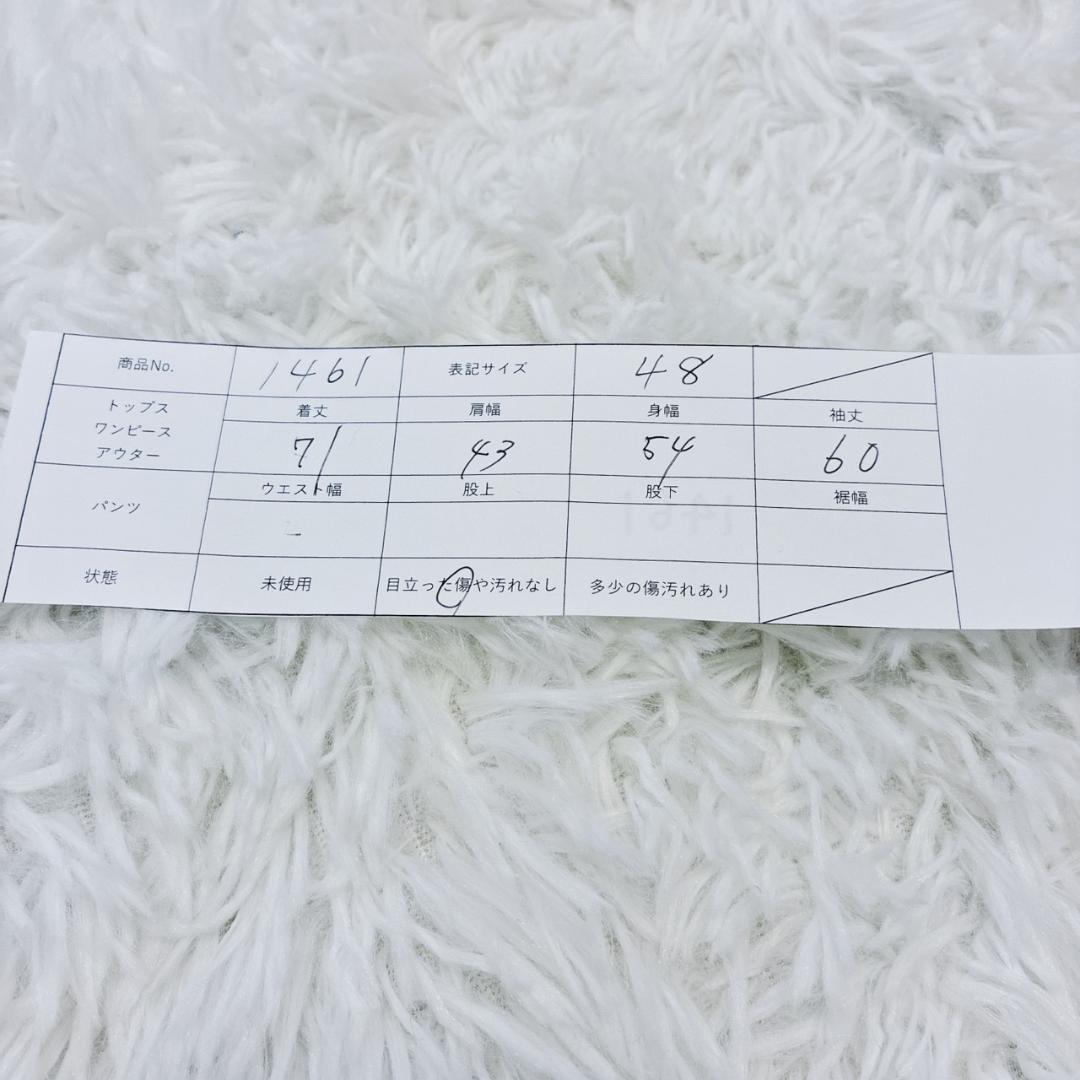 商品No. 1461 表記サイズ 48
トップス ワンピース アウター 着丈 肩幅 身幅 袖丈
71 43 54 60
パンツ ウエスト幅 股上 股下 裾幅
-
状態 未使用 目立った傷や汚れなし 多少の傷汚れあり